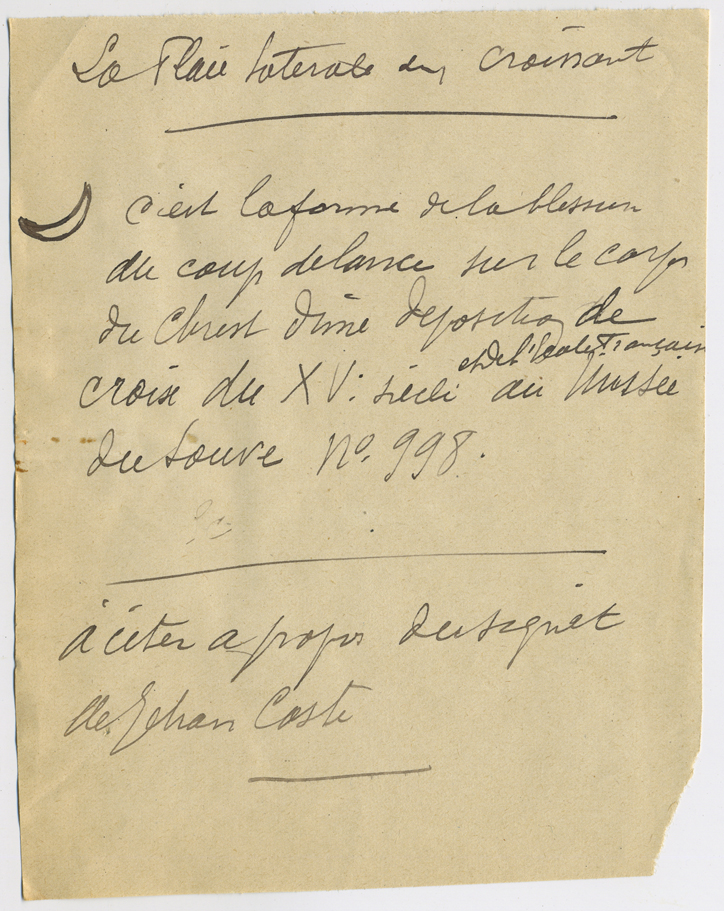 La Plaie latérale en croissant
c'est la forme de la blessure
du coup de lance sur le corps
du Christ d'une déposition de
croix du XV. siècle et de l'école Française du Musée
du Louvre No. 998.
à citer a propos du signet
de Jehan Coste